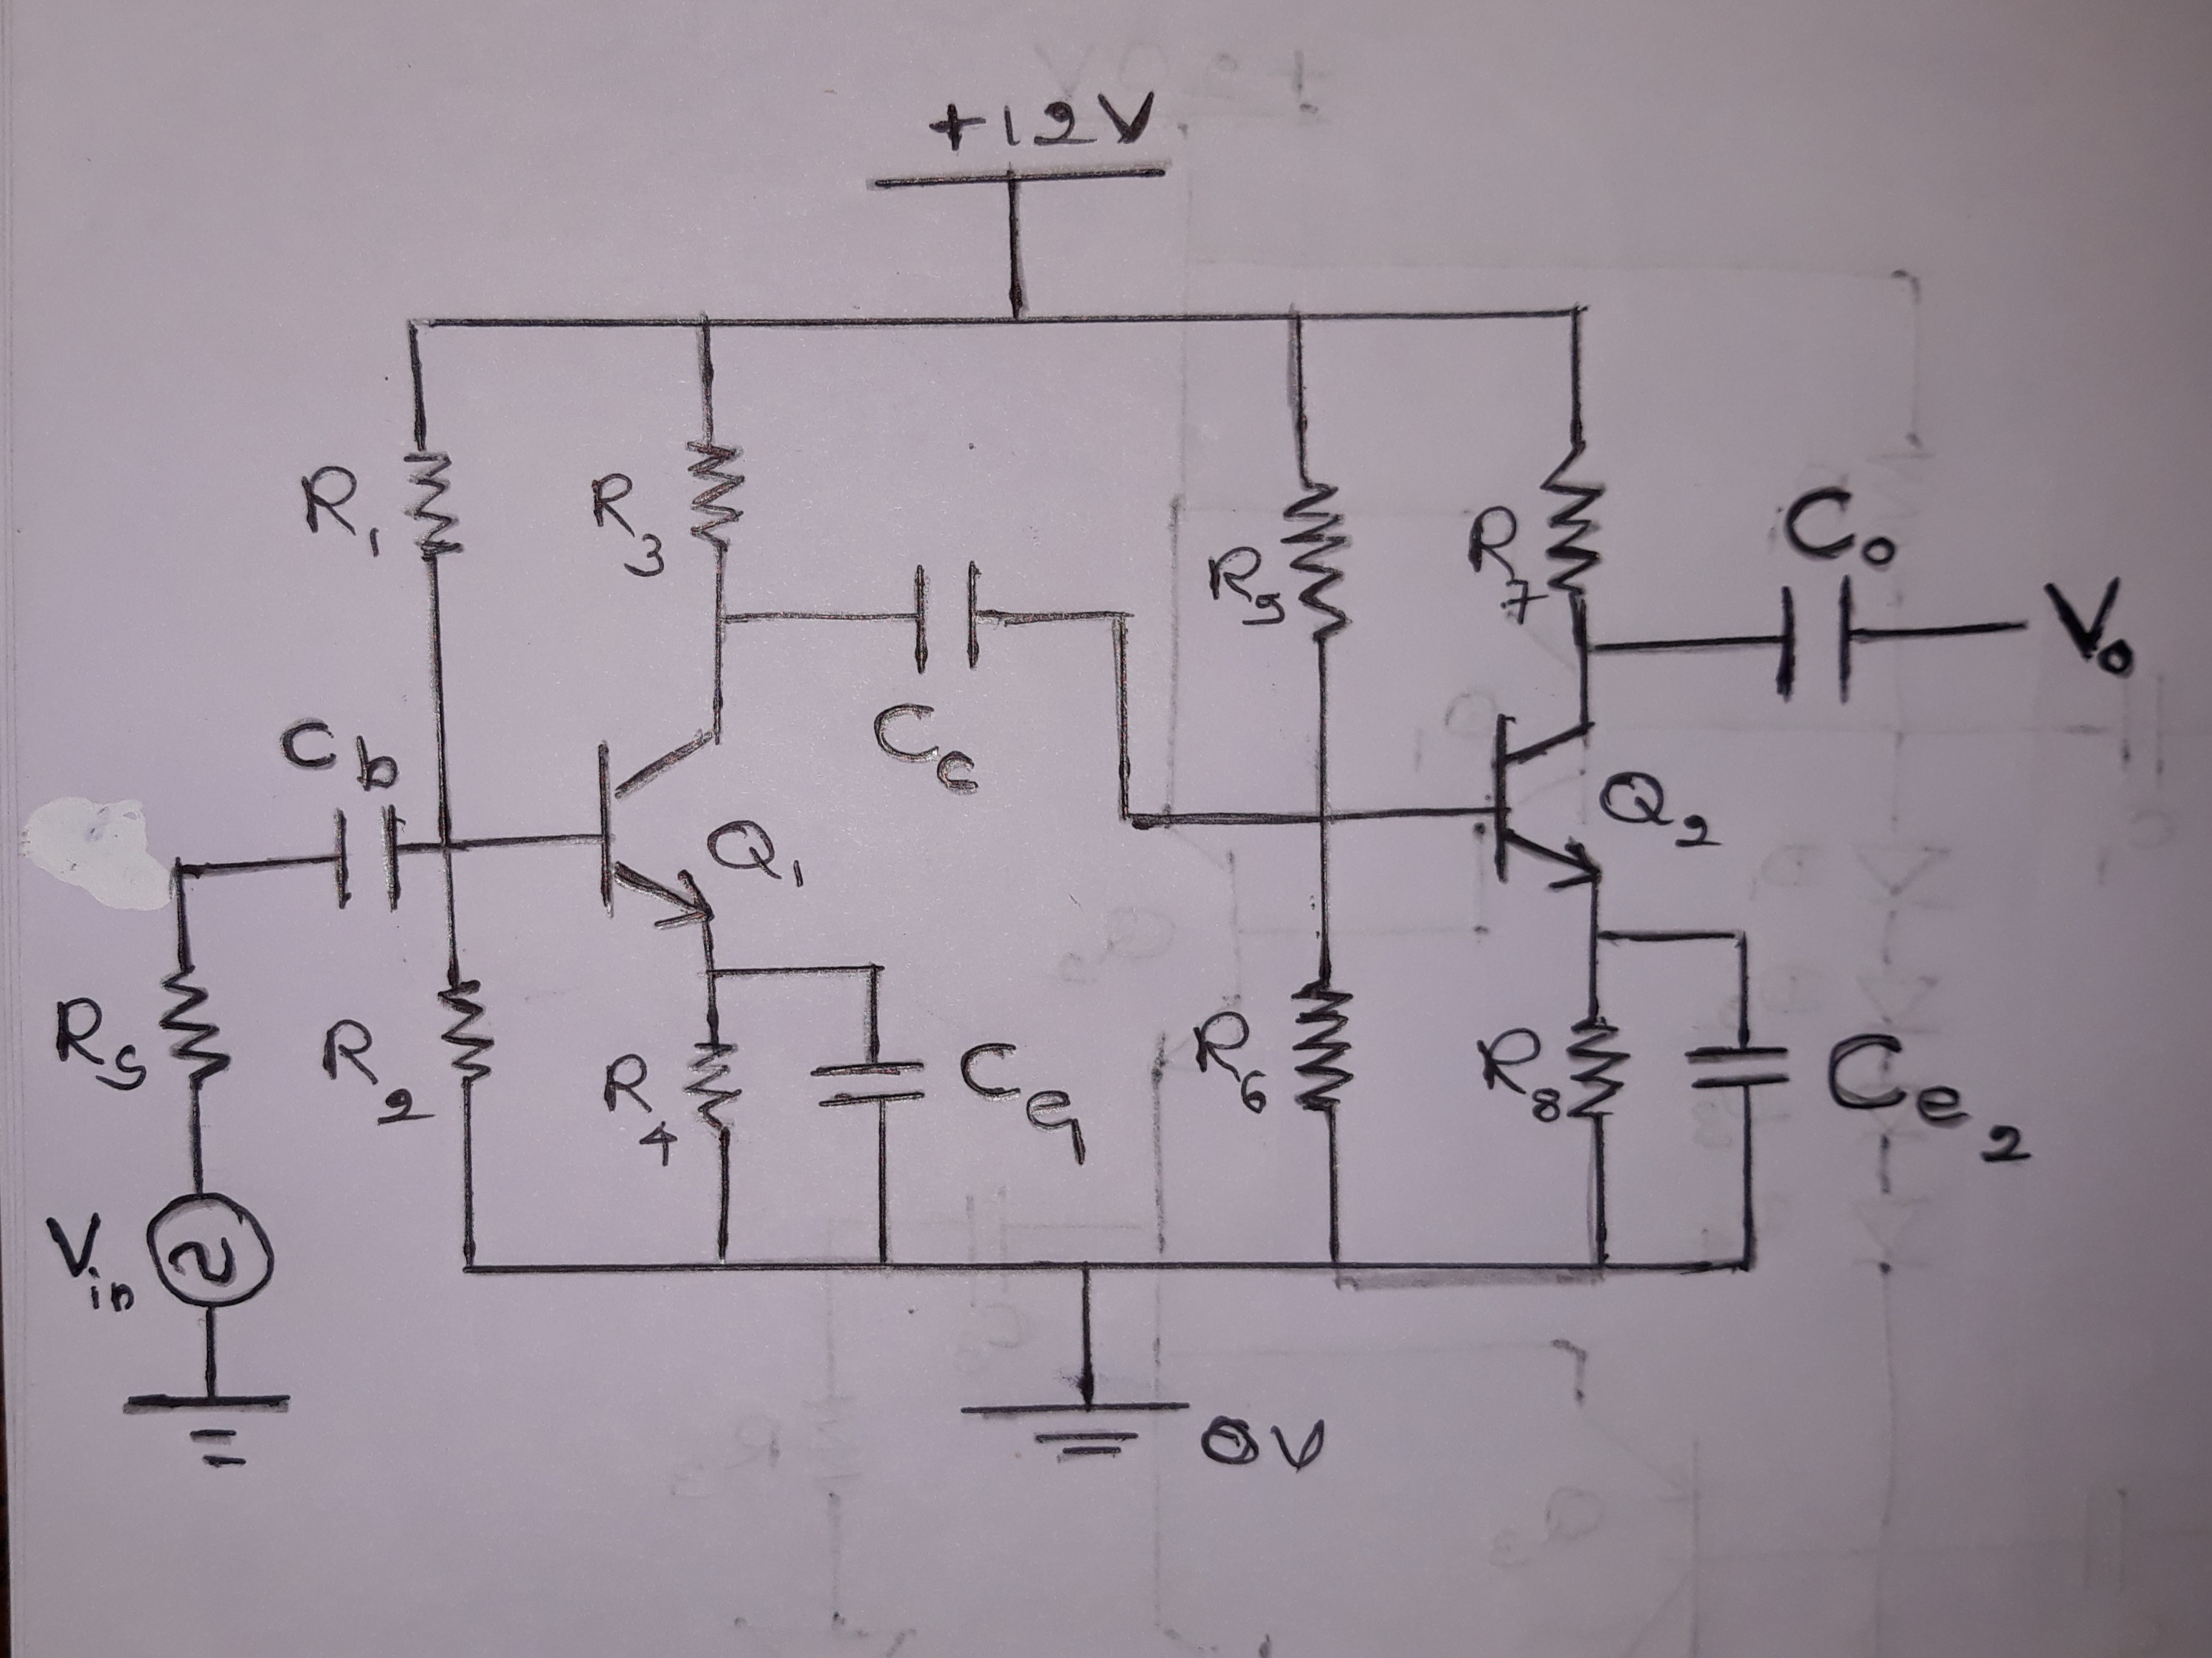 +12V
R1
R3
R5
R7
Co
Vo
Cb
Cc
Q1
Q2
Rs
R2
R4
Ce1
R6
R8
Ce2
Vin
0V